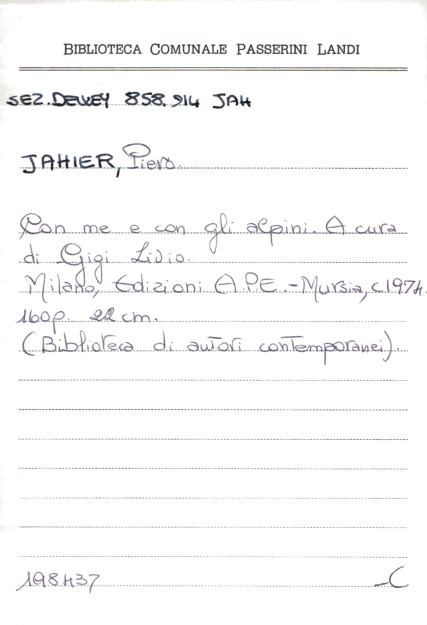 BIBLIOTECA COMUNALE PASSERINI LANDI
SEZ. DEWEY 858.914 JAH
JAHIER, Piero.
Con me e con gli alpini. A cura
di Gigi Livio.
Milano, Edizioni A.P.E.-Mursia, c.1974.
160p. 22 cm.
(Biblioteca di autori contemporanei).
198437 -C